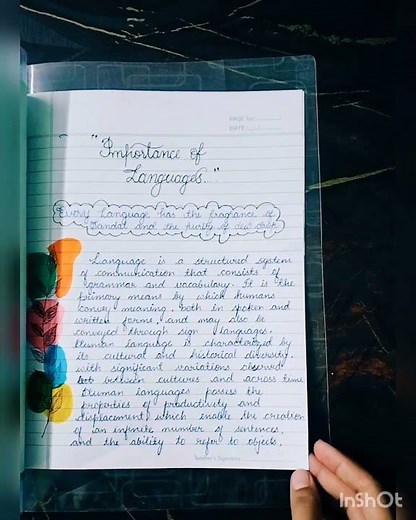 PAGE No.
DATE
"Importance of
Languages."
Every Language has the fragrance of
Sandal and the purity of dew drop
Language is a structured system
of communication that consists of
grammar and vocabulary. It is the
primary means by which humans
convey meaning, both in spoken and
written forms, and may also be
conveyed through sign languages.
Human language is characterized by
its cultural and historical diversity,
with significant variations observed
between cultures and across time
Human languages possess the
properties of productivity and
displacement, which enable the creation
of an infinite number of sentences,
and the ability to refer to objects,
Teacher's Signature
InShOt